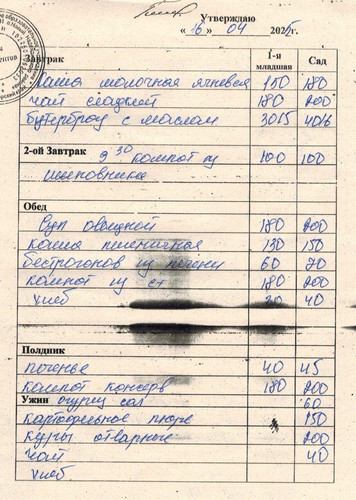 Утверждаю
« 16 » 04 2025г.
Завтрак 1-я младшая Сад
Каша молочная ячневая 150 180
чай сладкий 180 200
бутерброд с маслом 30/5 40/6
2-ой Завтрак 9 30 компот из 100 100
шиповника
Обед
Суп овощной 180 200
каша пшеничная 130 150
бестрогонов из печени 60 70
компот из с\т 180 200
хлеб 30 40
Полдник
печенье 40 45
компот консерв 180 200
Ужин огурец сол 60
картофельное пюре 150
куры отварные
чай 200
хлеб 40